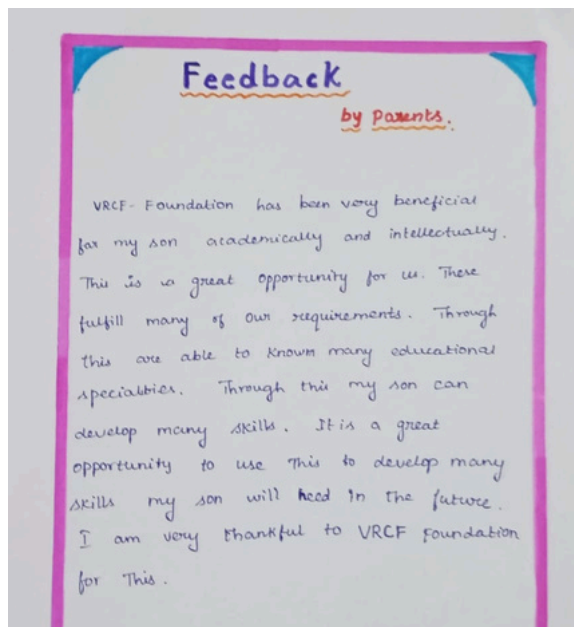 Feedback
by Parents.
VRCF- Foundation has been very beneficial
for my son academically and intellectually.
This is a great opportunity for us. There
fulfill many of our requirements. Through
this are able to known many educational
specialties. Through this my son can
develop many skills. It is a great
opportunity to use This to develop many
skills my son will need in the future.
I am very thankful to VRCF Foundation
for This.